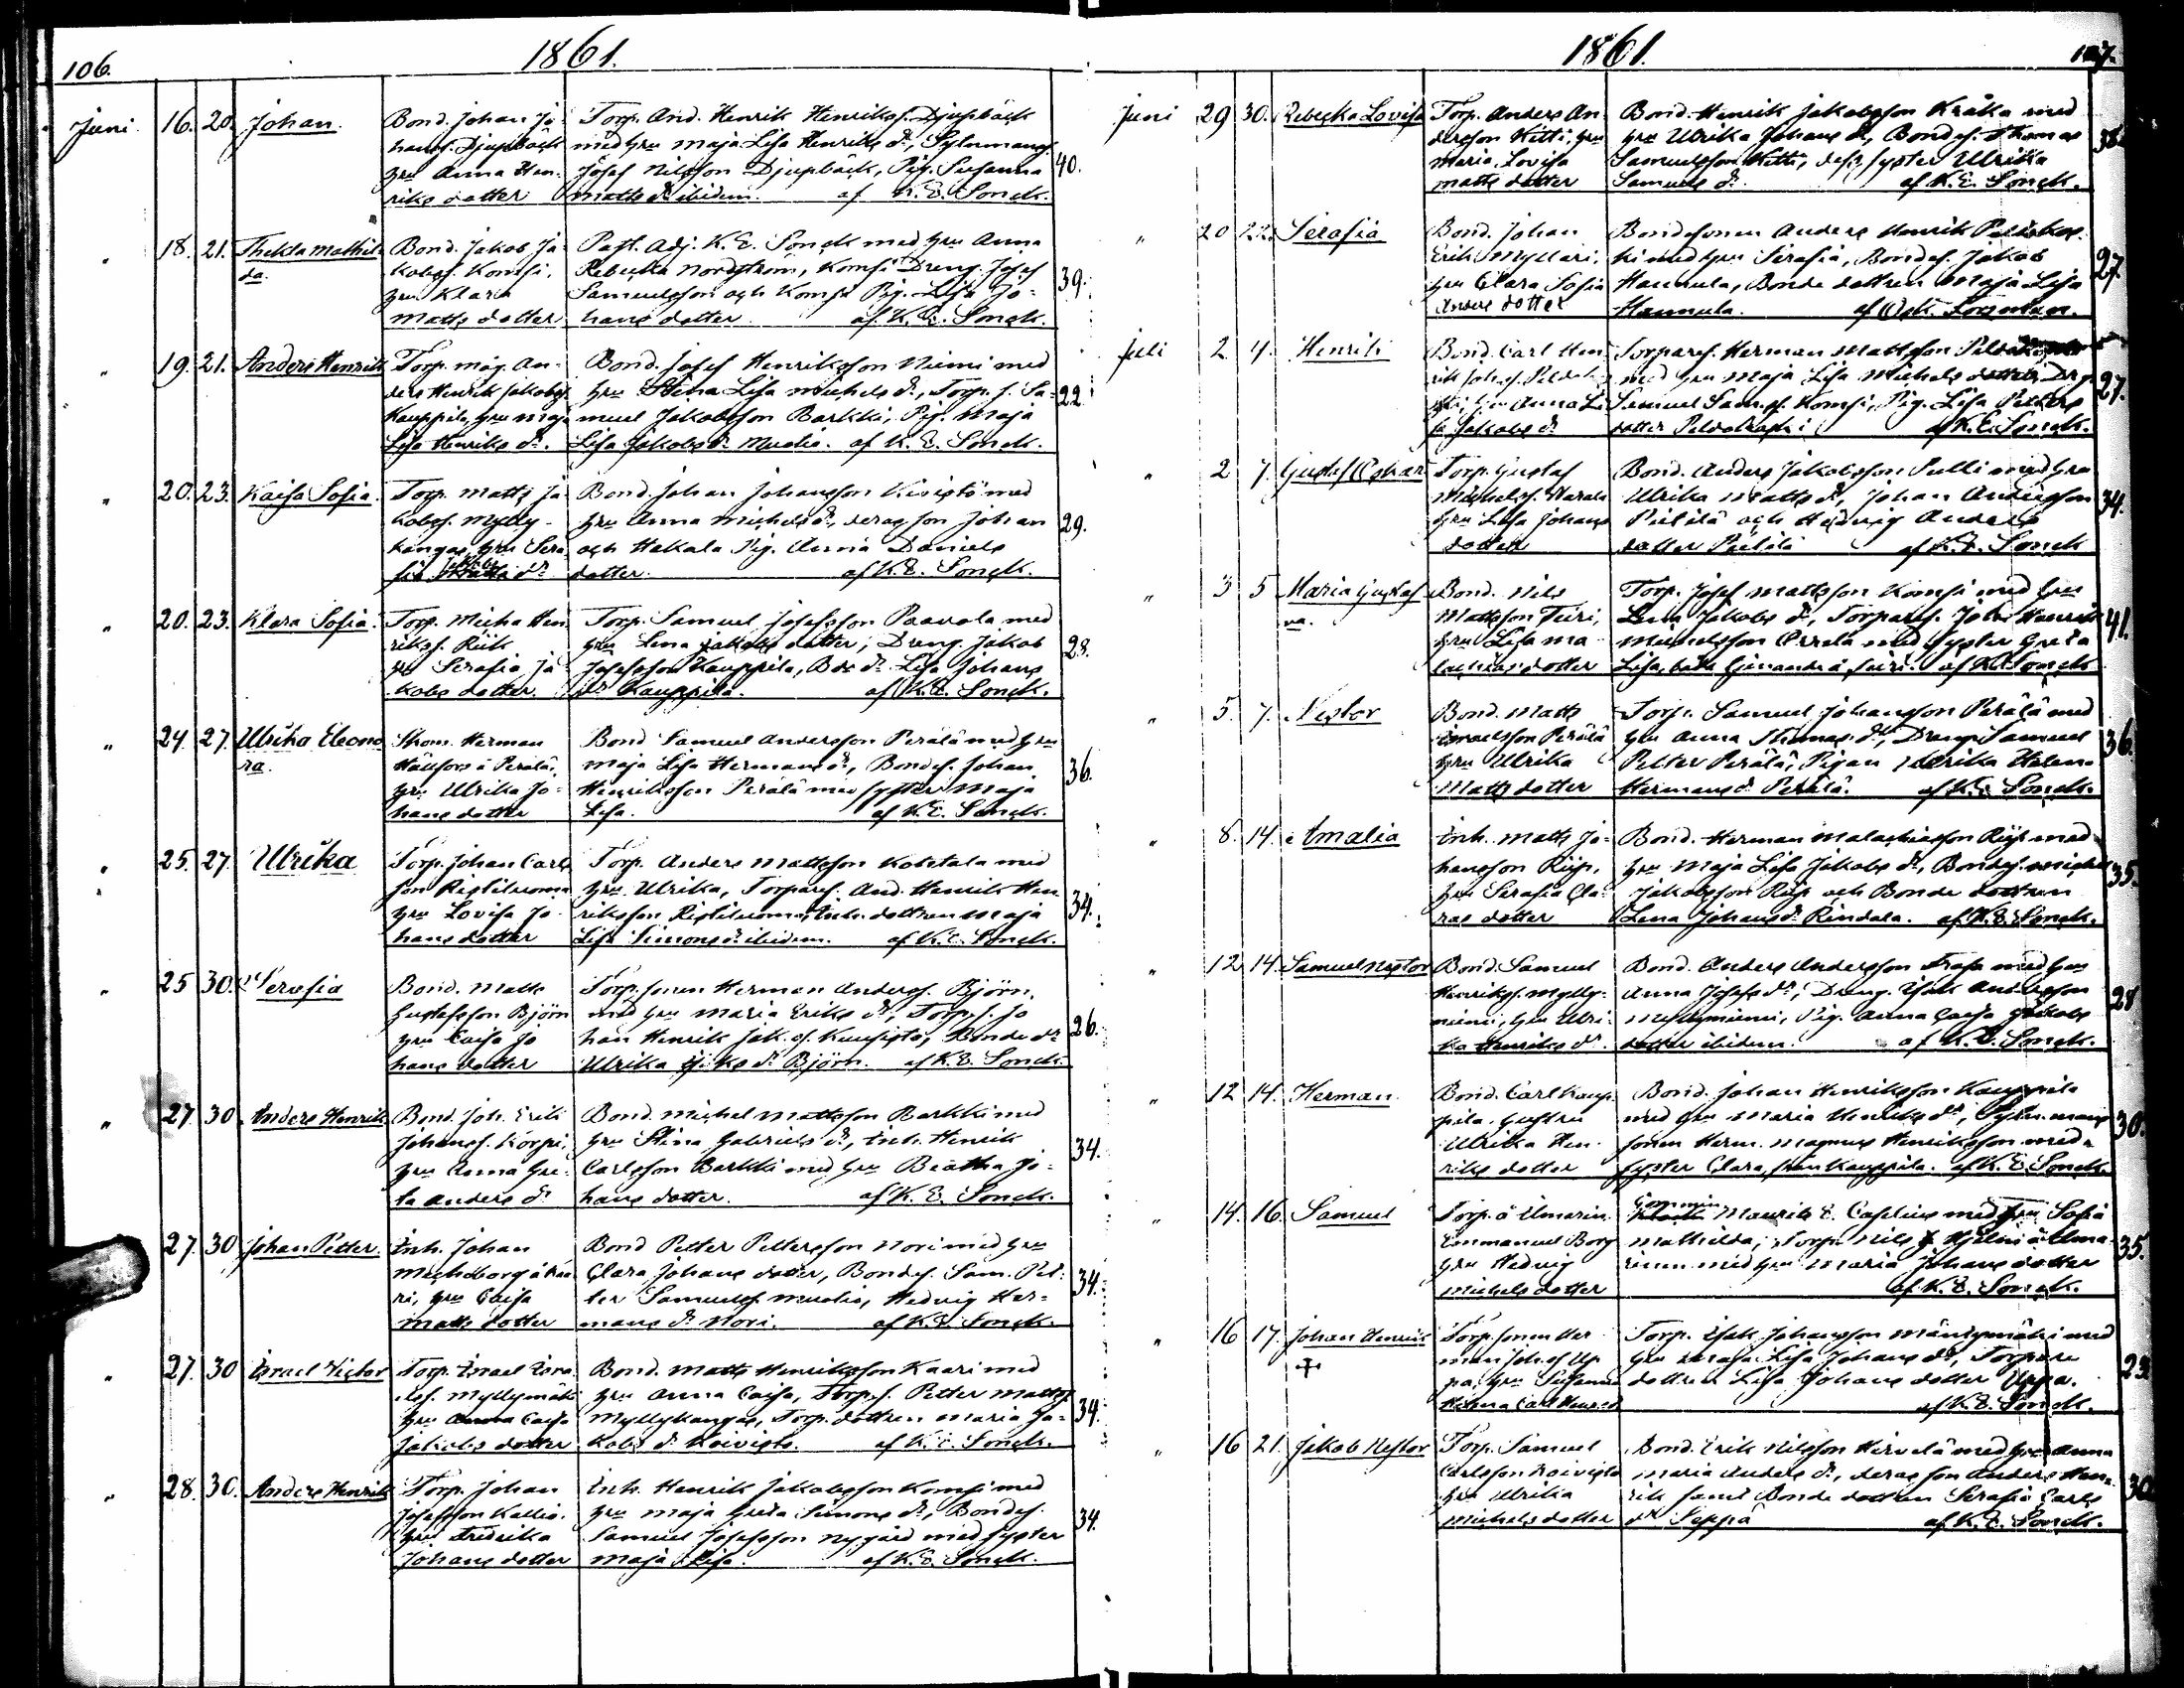 106.
1861.
Juni 16. 20. Johan.
Bond. Johan Jo-
hansf. Djupbäck
hru Anna Hen-
riks dotter
Torp. And. Henrik Henriksf. Djupbäck
med hru Maja Lisa Henriks dr, Sytnmansf.
Josef Nilsson Djupbäck, Pig. Susanna
Matts dr ibidem. af K. E. Sonck.
40.
" 18. 21. Thekla Mathil-
da.
Bond. Jakob Ja-
kobsf. Komsi,
hru Klara
Matts dotter
Past. Adj. K. E. Sonck med hru Anna
Rebecka Nordström, Komsi Dreng Josef
Samuelsson och Komsi Pig. Lisa Jo-
hans dotter. af K. E. Sonck.
39.
" 19. 21. Anders Henrik
Torp. måg An-
ders Henrik Jakobsf.
Kauppila, hru Maja
Lisa Henriks dr.
Bond. Josef Henriksson Niemi med
hru Stina Lisa Michels dr, Torp. s. Sa-
muel Jakobsson Barkki, Pig. Maja
Lisa Jakobs dr Mudio. af K. E. Sonck.
22.
" 20. 23. Kaisa Sofia.
Torp. Matts Ja-
kobsf. Mylly-
kangas, hru Sera-
fia dr
Bond. Johan Johansson Kivistö med
hru Anna Michels dr, deras son Johan
och Hakala Pig. Anna Daniels
dotter. af K. E. Sonck.
29.
" 20. 23. Klara Sofia.
Torp. Micha Hen-
riksf. Riik
hru Serafia Ja-
kobs dotter.
Torp. Samuel Josefsson Paavola med
hru Lena Jakobs dotter, Dreng Jakob
Josefsson Kauppila, Bde dr Lisa Johans
dr Kauppila. af K. E. Sonck.
28.
" 24. 27. Ulrika Eleono-
ra.
Skom. Herman
Hällfors å Perälä,
hru Ulrika Jo-
hans dotter
Bond Samuel Andersson Perälä med hru
Maja Lisa Hermans dr, Bondes. Johan
Henriksson Perälä med syster Maja
Lisa. af K. E. Sonck.
36.
" 25. 27. Ulrika
Torp. Johan Carls-
son Ristiluoma
hru Lovisa Jo-
hans dotter
Torp. Anders Mattsson Kohtala med
hru Ulrika, Torparef. And. Henrik Hen-
riksson Ristiluoma, Inh. dottren Maja
Lisa Simons dr ibidem. af K. E. Sonck.
34.
" 25 30. Serafia
Bond. Matts
Gustafsson Björn
hru Caisa Jo-
hans dotter
Torp. sonen Herman Andersf. Björn,
med hru Maria Eriks dr, Torp. s. Jo-
han Henrik Jak. sf. Kuusisto, Bonde dr
Ulrika dr Björn. af K. E. Sonck.
26.
" 27. 30 Anders Henrik
Bond. Joh. Erik
Johansf. Korpi,
hru Anna Gre-
ta Anders dr
Bond. Michel Mattsson Barkki med
hru Stina Gabriels dr, Inh. Henrik
Carlsson Barkki med hru Beatha Jo-
hans dotter. af K. E. Sonck.
34.
27. 30 Johan Petter.
Inh. Johan
å Kaa-
ri, hru Caisa
Matts dotter
Bond Petter Pettersson Nori med hru
Clara Johans dotter, Bondes. Sam. Pet-
ter Samuelsf. Mudio, Hedvig Her-
mans dr Nori. af K. E. Sonck.
34.
" 27. 30 Israel Victor
Torp. Israel Isra-
elsf. Myllymäki
hru Anna Caisa
Jakobs dotter
Bond. Matts Henriksson Kaari med
hru Anna Caisa, Torp. s. Petter Mattsf.
Myllykangas, Torp. dottren Maria Ja-
kobs dr Koivisto. af K. E. Sonck.
34.
" 28. 30. Anders Henrik
Torp. Johan
Josefsson Kallio.
hru Fredrika
Johans dotter
Inh. Henrik Jakobsson Komsi med
hru Maja Greta Simons dr, Bondes.
Samuel Josefsson Nygård med syster
Maja Lisa. af K. E. Sonck.
34.
1861.
107.
Juni 29 30. Rebecka Lovisa
Torp. Anders An-
dersson Kitti, hru
Maria Lovisa
Matts dotter
Bond. Henrik Jakobsson Kråka med
hru Ulrika Johans dr, Bondes. Thomas
Samuelsson Kitti, dess syster Ulrika
Samuels dr. af K. E. Sonck.
38.
" 20 22. Serafia
Bond. Johan
Erik Myllari,
hru Clara Sofia
Anders dotter
Bondesonen Anders Henrik
med hru Serafia, Bondes. Jakob
Hannula, Bonde dottren Maja Lisa
Hannula. af Osk. Forsman.
27.
Juli 2. 4. Henrik
Bond. Carl Hen-
rik
hru Anna Li-
sa Jakobs dr
Torparef. Herman Mattsson
med hru Maja Lisa Michels dotter, Drg.
Samuel Sam. sf. Komsi, Pig. Lisa Petters
dotter af K. E. Sonck.
27.
" 2 7. Gustaf Oskar
Torp. Gustaf
Michelsf. Harala
hru Lisa Johans
dotter
Bond. Anders Jakobsson Pulli med hru
Ulrika Matts dr, Johan Andersson
Pietilä och Hedvig Anders
dotter Pietilä af K. E. Sonck
34.
" 3 5 Maria Gustaf-
va.
Bond. Nils
Mattsson Feiri,
hru Lisa Ma-
lachias dotter
Torp. Josef Mattsson Komsi med hru
Lena Jakobs dr, Torparef. Joh. Henrik
Michelsson Orrela med syster Greta
Lisa, af K. E. Sonck
41.
" 5. 7. Nestor
Bond. Matts
Israelsson Perälä
hru Ulrika
Matts dotter
Torp. Samuel Johansson Perälä med
hru Anna Thomas dr, Dreng Samuel
Petter Perälä, Pigan Ulrika Helena
Hermans dr Perälä. af K. E. Sonck.
36.
" 8. 14. Amalia
Inh. Matts Jo-
hansson Riip,
hru Serafia Cla-
ras dotter
Bond. Herman Malachiasson Riip med
hru Maja Lisa Jakobs dr, Bondes. Michel
Jakobsson Riip och Bonde dottren
Lena Johans dr Rindala. af K. E. Sonck.
35.
" 12 14. Samuel Nestor
Bond. Samuel
Henriksf. Mylly-
niemi, hru Ulri-
ka Henriks dr.
Bond. Anders Andersson med hru
Anna Josefs dr, Dreng Isak Andersson
Myllyniemi, Pig. Anna Caisa Jakobs
dotter ibidem. af K. E. Sonck.
28
" 12 14. Herman
Bond. Carl Kaup-
pila, hustru
Ulrika Hen-
riks dotter
Bond. Johan Henriksson Kauppila
med hru Maria Henriks dr, Sytn. mans
sonen Herm. Magnus Henriksson med
syster Clara, från Kauppila. af K. E. Sonck.
30.
" 14. 16. Samuel
Torp. å Ilmarin.
Emmanuel Borg
hru Hedvig
Michels dotter
Maurits E. Caselius med fru Sofia
Mathilda, Torp. Nils Hjelm å Ilma-
rinen med hru Maria Johans dotter
af K. E. Sonck.
35.
" 16 17. Johan Henrik
+
Torp. sonen Her-
man Joh. sf. Up-
pa, hru Susanna
Torp. Isak Johansson Mäntymäki med
hru Maja Lisa Johans dr, Torpare
dottren Lisa Johans dotter Uppa.
af K. E. Sonck.
23
" 16 21. Jakob Nestor
Torp. Samuel
Carlsson Koivisto
hru Ulrika
Michels dotter
Bond. Erik Nilsson Hirvelä med hru Anna
Maria Anders dr, deras son Anders Hen-
rik samt Bonde dottren Serafia Carls
dr Seppä af K. E. Sonck.
30.